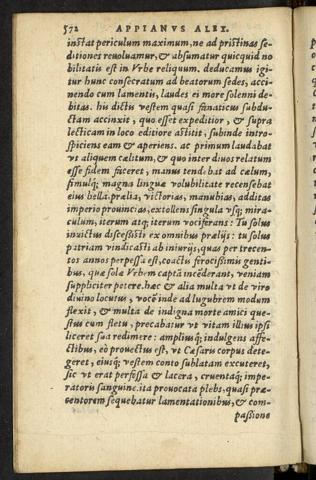 572 APPIANVS ALEX.
instat periculum maximum, ne ad pristinas se-
ditiones reuoluamur, & absumatur quicquid no
bilitatis est in Vrbe reliquum. deducamus igi
tur hunc consecratum ad beatorum sedes, acci-
nendo cum lamentis, laudes ei more solenni de-
bitas. his dictis vestem quasi fanaticus subdu-
ctam accinxit, quo esset expeditior, & supra
lecticam in loco editiore astitit, subinde intro-
spiciens eam & aperiens. ac primum laudabat
vt aliquem cælitum, & quo inter diuos relatum
esse fidem faceret, manus tendebat ad cælum,
simulq; magna linguæ volubilitate recensebat
eius bella, prælia, victorias, manubias, additas
imperio prouincias, extollens singula vsq; mira-
culum, iterum atq; iterum vociferans: Tu solus
inuictus discesisti ex omnibus prælijs: tu solus
patriam vindicasti ab iniurijs, quas per trecen-
tos annos perpessa est, coactis ferocissimis genti-
bus, quæ solæ Vrbem captā incēderant, veniam
suppliciter petere. hæc & alia multa vt de viro
diuino locutus, vocē inde ad lugubrem modum
flexit, & multa de indigna morte amici que-
stus cum fletu, precabatur vt vitam illius ipsi
liceret sua redimere: ampliusq; indulgens affe-
ctibus, eò prouectus est, vt Cæsaris corpus dete-
geret, eiusq; vestem conto sublatam excuteret,
sic vt erat perfossa & lacera, cruentaq; impe-
ratoris sanguine. ita prouocata plebs, quasi præ-
centorem sequebatur lamentationibus, & com-
passione